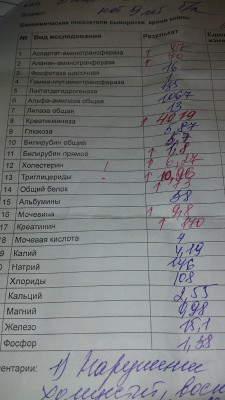 Биохимические показатели сыворотки крови
№ Вид исследования Результат
1 Аспартат-аминотрансфераза
2 Аланин-аминотрансфераза
3 Фосфатаза щелочная 16
4 Гамма-глутамилтрансфераза
5 Лактатдегидрогеназа
6 Альфа-амилаза общая 1067
7 Липаза общая 13
8 Креатинкиназа ↑ 4019
9 Глюкоза 5,87
10 Билирубин общий
11 Билирубин прямой ↑ 1,8
12 Холестерин ! ↑ 6,27
13 Триглицериды ! ↑ 10,96
14 Общий белок ↑ 83
15 Альбумины 38
16 Мочевина ↑ 9,8
17 Креатинин ↑ 170
18 Мочевая кислота 4
Калий 4,19
Натрий 146
Хлориды 108
Кальций 2,55
Магний 0,98
Железо 15,1
Фосфор 1,38
1) Нарушения